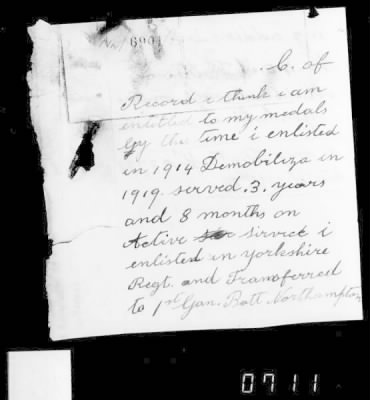 No/6904
C. of
Record i think i am
entitled to my medals
By the time i enlisted
in 1914 Demobiliza in
1919. served. 3. years
and 8 months on
Active sirvice i
enlisted in yorkshire
Regt. and Transferred
to 1st Gan. Batt Northampton
0711